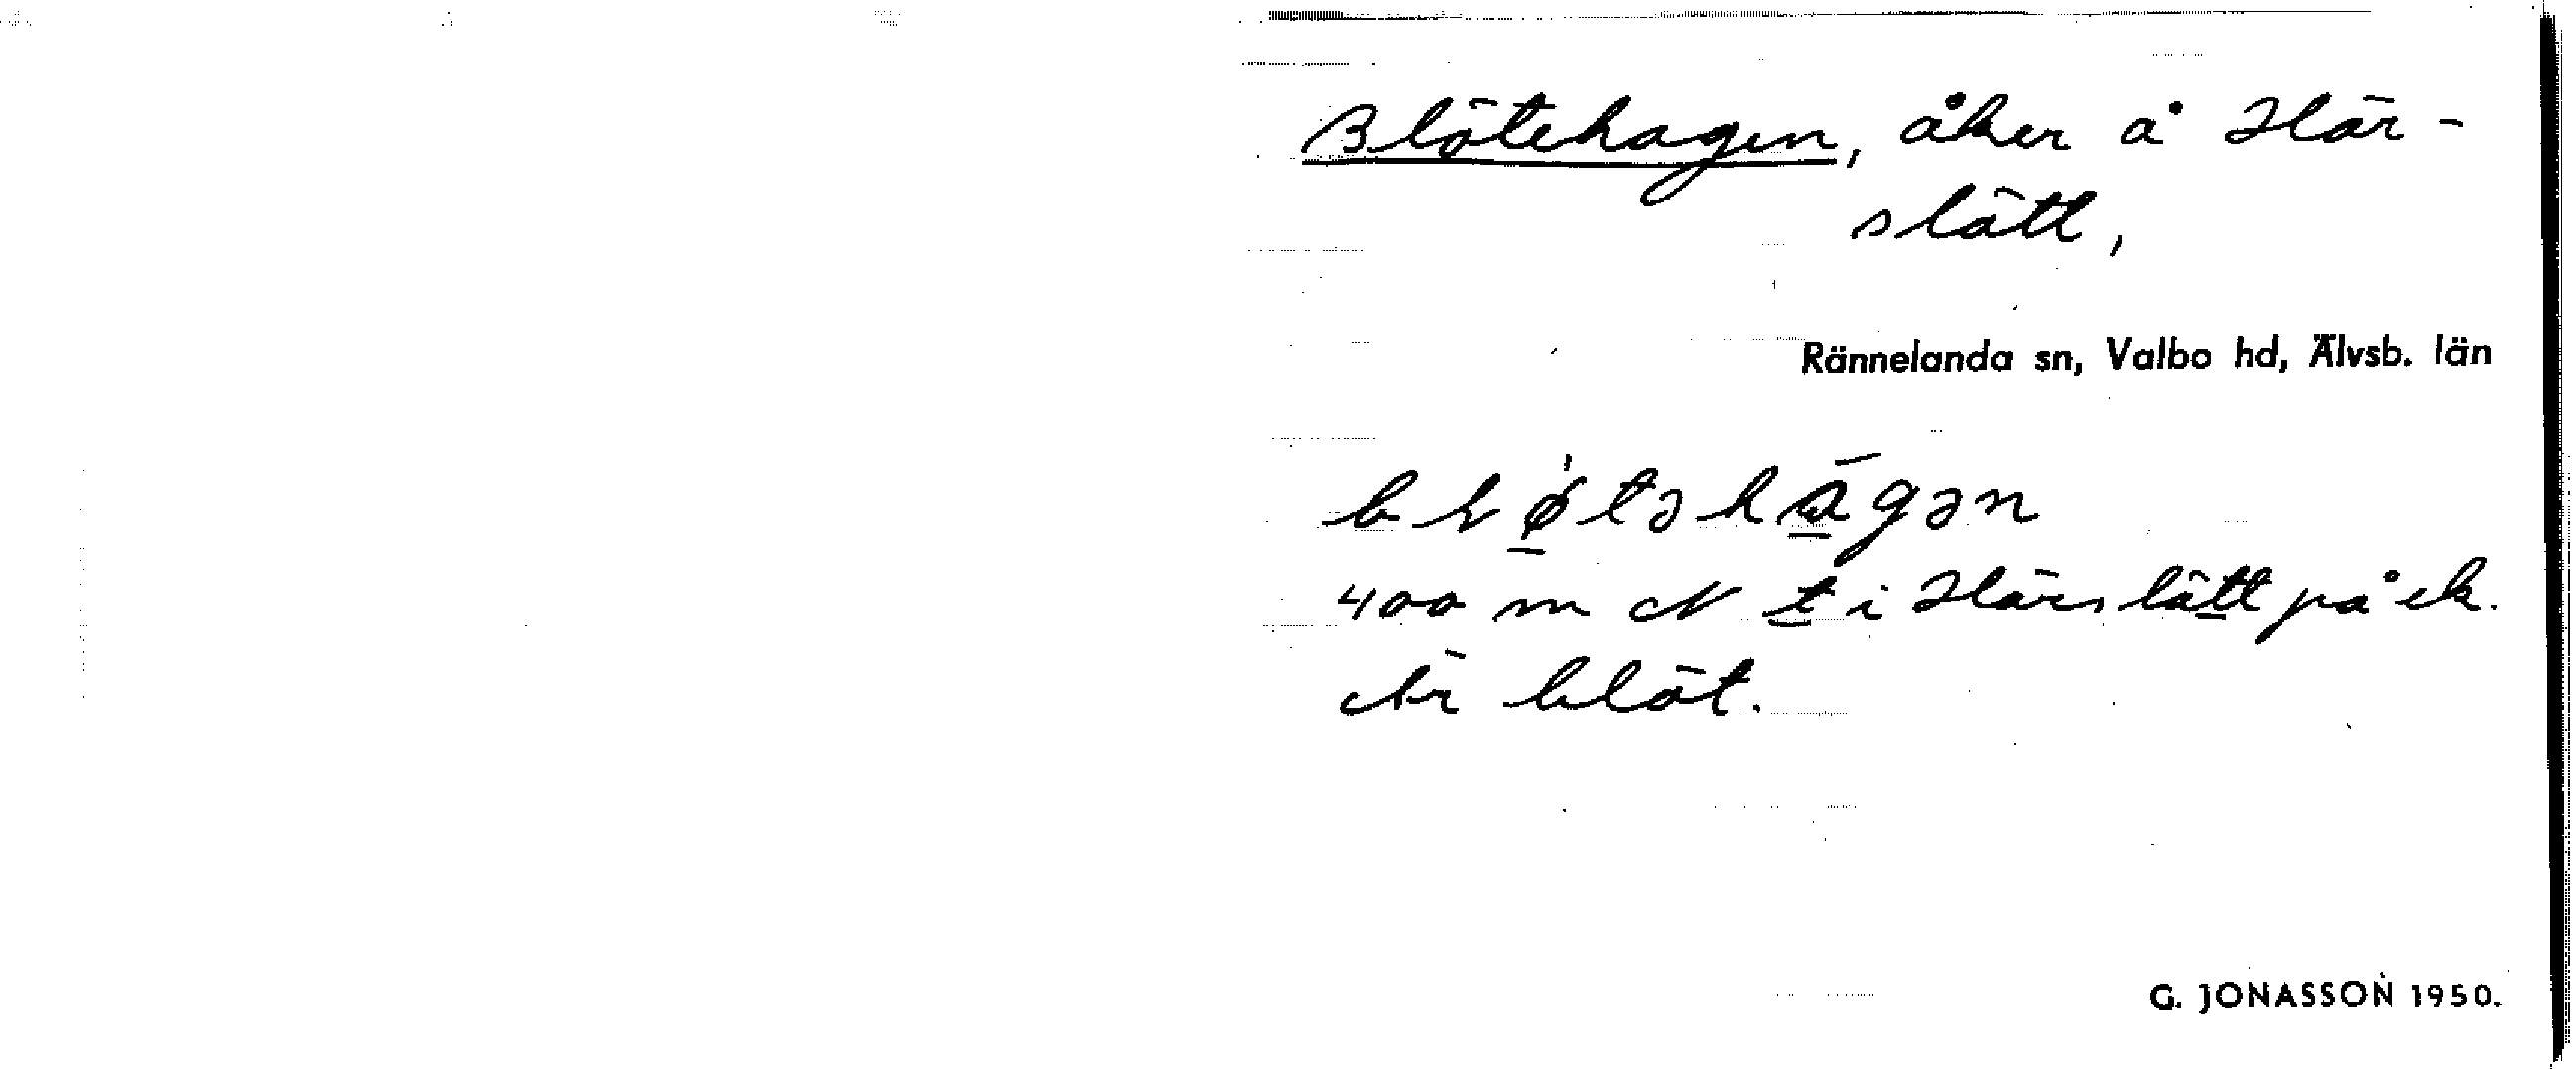 Blötehagen, åker å Här-
slätt,
Rännelanda sn, Valbo hd, Älvsb. län
bḷø̱̍təhа̱̄gən
400 m N t i Härslätt på ek.
Är blöt.
G. JONASSON 1950.